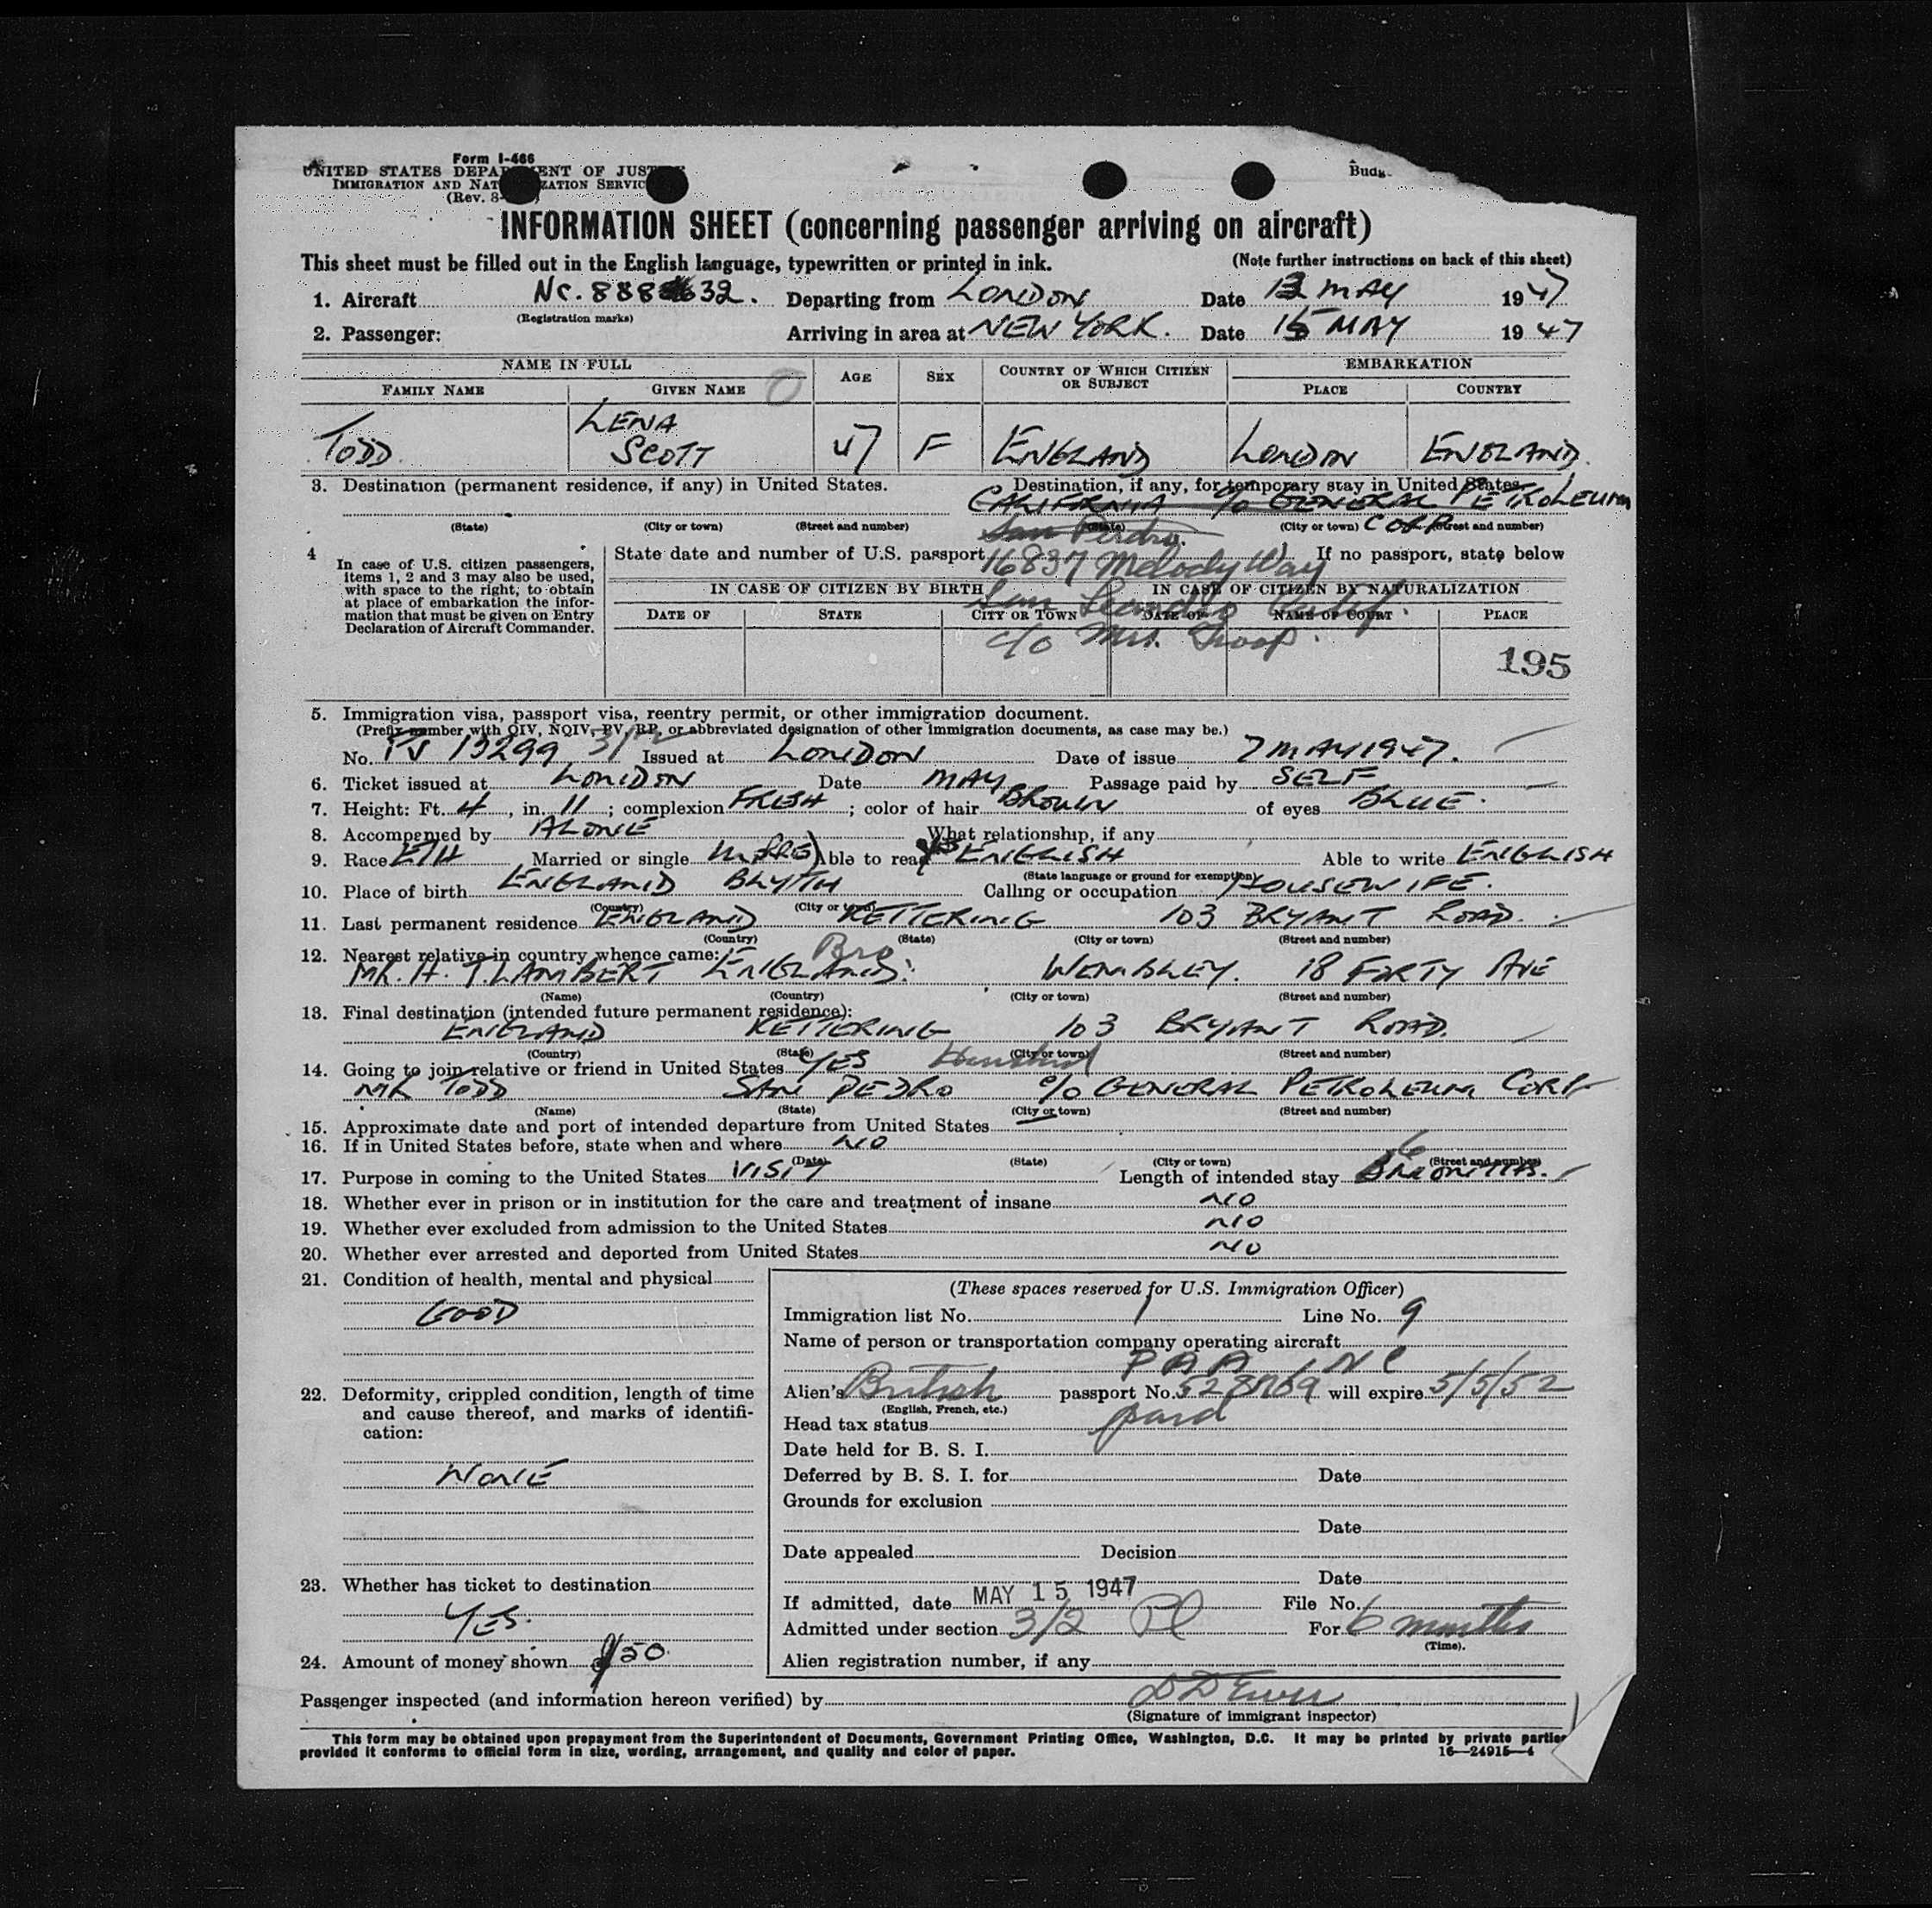 Form I-466
UNITED STATES DEPA ENT OF JUST
IMMIGRATION AND NAT ZATION SERVIC
(Rev. 8-
Budg
INFORMATION SHEET (concerning passenger arriving on aircraft)
This sheet must be filled out in the English language, typewritten or printed in ink. (Note further instructions on back of this sheet)
1. Aircraft NC. 888 32. Departing from LONDON Date 13 MAY 1947
(Registration marks)
2. Passenger: Arriving in area at NEW YORK. Date 15 MAY 1947
NAME IN FULL AGE SEX COUNTRY OF WHICH CITIZEN OR SUBJECT EMBARKATION
FAMILY NAME GIVEN NAME PLACE COUNTRY
TODD LENA SCOTT 47 F ENGLAND LONDON ENGLAND
3. Destination (permanent residence, if any) in United States. Destination, if any, for temporary stay in United States.
CALIFORNIA c/o GENERAL PETROLEUM
(State) (City or town) (Street and number) (State) (City or town) CORP (Street and number)
San Perdro.
4 In case of U.S. citizen passengers, items 1, 2 and 3 may also be used, with space to the right, to obtain at place of embarkation the information that must be given on Entry Declaration of Aircraft Commander.
State date and number of U.S. passport If no passport, state below
16837 Melody Way
IN CASE OF CITIZEN BY BIRTH IN CASE OF CITIZEN BY NATURALIZATION
San Leandro Calif.
DATE OF STATE CITY OR TOWN DATE OF NAME OF COURT PLACE
c/o Mrs. Troop.
195
5. Immigration visa, passport visa, reentry permit, or other immigration document.
(Prefix number with QIV, NQIV, PV, RP, or abbreviated designation of other immigration documents, as case may be.)
No. PV 13299 3/2 Issued at LONDON Date of issue 7 MAY 1947.
6. Ticket issued at LONDON Date MAY Passage paid by SELF
7. Height: Ft. 4, in. 11; complexion FRESH; color of hair BROWN of eyes BLUE.
8. Accompanied by ALONE What relationship, if any
9. Race Married or single Able to read YES ENGLISH Able to write ENGLISH
(State language or ground for exemption)
10. Place of birth ENGLAND BLYTH Calling or occupation HOUSEWIFE.
(Country) (City or town)
11. Last permanent residence ENGLAND KETTERING 103 BRYANT ROAD.
(Country) (State) (City or town) (Street and number)
12. Nearest relative in country whence came: Bro
MR. H. T. LAMBERT ENGLAND. WEMBLEY. 18 FORTY AVE
(Name) (Country) (City or town) (Street and number)
13. Final destination (intended future permanent residence):
ENGLAND KETTERING 103 BRYANT ROAD.
(Country) (State) (City or town) (Street and number)
14. Going to join relative or friend in United States YES Husband
MR TODD SAN PEDRO c/o GENERAL PETROLEUM CORP
(Name) (State) (City or town) (Street and number)
15. Approximate date and port of intended departure from United States
16. If in United States before, state when and where NO
(Date) (State) (City or town) (Street and number)
17. Purpose in coming to the United States VISIT Length of intended stay 6 MONTHS.
18. Whether ever in prison or in institution for the care and treatment of insane NO
19. Whether ever excluded from admission to the United States NO
20. Whether ever arrested and deported from United States NO
21. Condition of health, mental and physical
GOOD
22. Deformity, crippled condition, length of time and cause thereof, and marks of identification:
NONE
23. Whether has ticket to destination
YES.
24. Amount of money shown 50
(These spaces reserved for U.S. Immigration Officer)
Immigration list No. 1 Line No. 9
Name of person or transportation company operating aircraft
P A A INC
Alien's British passport No. 528769 will expire 5/5/52
(English, French, etc.)
Head tax status paid
Date held for B. S. I.
Deferred by B. S. I. for Date
Grounds for exclusion
Date
Date appealed Decision
Date
If admitted, date MAY 15 1947 File No.
Admitted under section 3/2 Pl For 6 months
(Time).
Alien registration number, if any
Passenger inspected (and information hereon verified) by
(Signature of immigrant inspector)
This form may be obtained upon prepayment from the Superintendent of Documents, Government Printing Office, Washington, D.C. It may be printed by private parties
provided it conforms to official form in size, wording, arrangement, and quality and color of paper. 16—24915-4